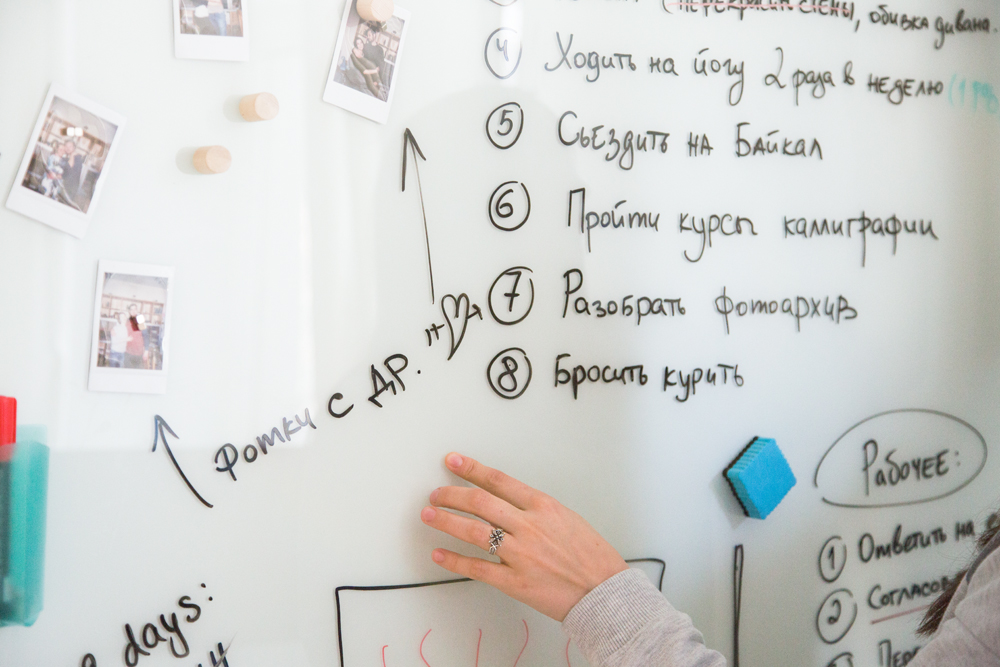 (перекрасить стены, обивка дивана.
4 Ходить на йогу 2 раза в неделю
5 Сьездить на Байкал
6 Пройти курсы каллиграфии
7 Разобрать фотоархив
8 Бросить курить
Фотки с ДР.
Рабочее:
1 Ответить на
2 Согласов
days: